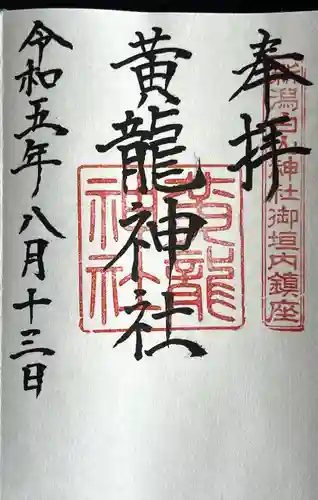 奉拝
新潟白山神社御垣内鎮座
黄龍神社
黄龍神社
令和五年八月十三日